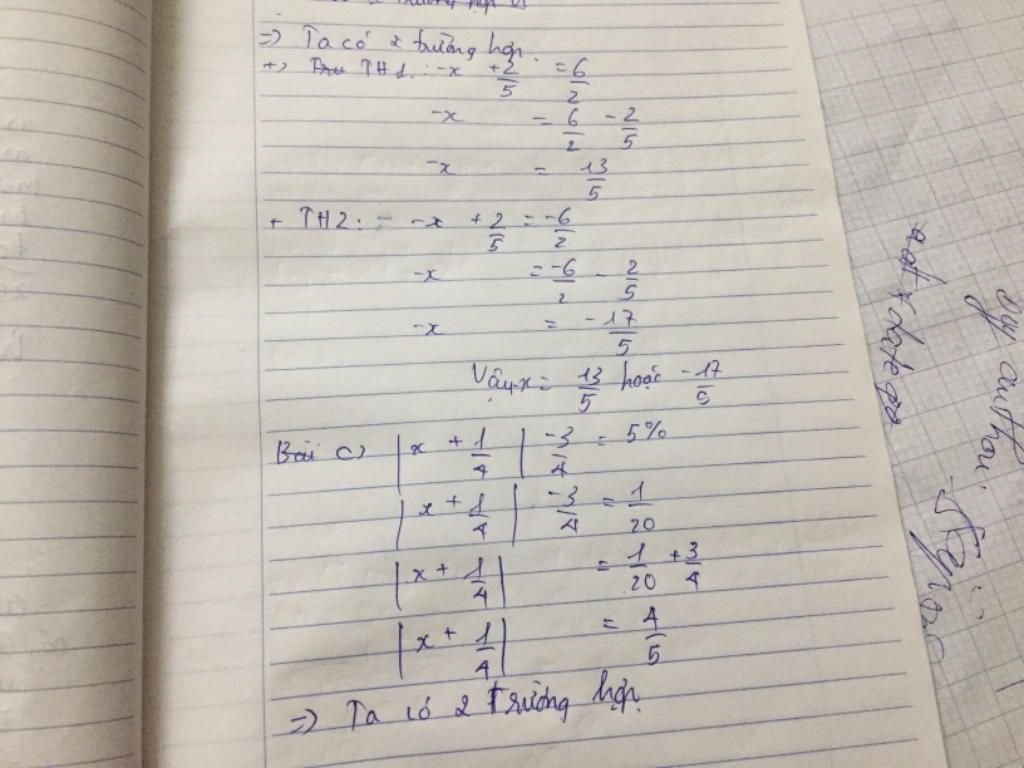 ⇒ Ta có 2 trường hợp.
+) TH1: -x + 2/5 = 6/2
-x = 6/2 - 2/5
-x = 13/5
+ TH2: = -x + 2/5 = -6/2
-x = -6/2 - 2/5
-x = -17/5
Vậy x = 13/5 hoặc -17/5
Bài c) |x + 1/4| -3/4 = 5%
|x + 1/4| -3/4 = 1/20
|x + 1/4| = 1/20 + 3/4
|x + 1/4| = 4/5
⇒ Ta có 2 trường hợp